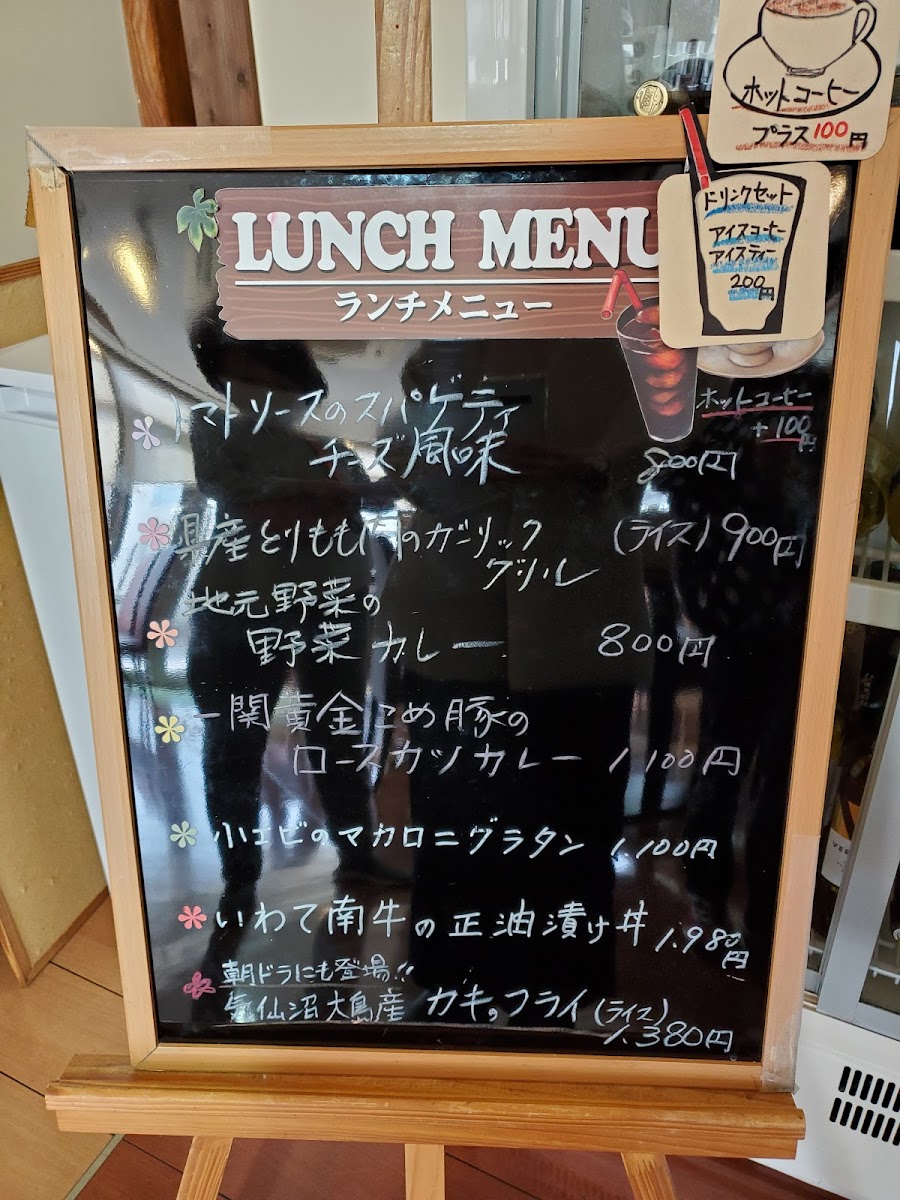 ホットコーヒー
プラス100円
ドリンクセット
アイスコーヒー
アイスティー
200円
LUNCH MENU
ランチメニュー
ホットコーヒー
+100円
トマトソースのスパゲティ
チーズ風味 800円
県産とりもも肉のガーリック (ライス) 900円
グリル
地元野菜の
野菜カレー 800円
一関黄金こめ豚の
ロースカツカレー 1,100円
小エビのマカロニグラタン 1.100円
いわて南牛の正油漬け丼 1.980円
朝ドラにも登場!!
気仙沼大島産 カキのフライ (ライス)
1.380円